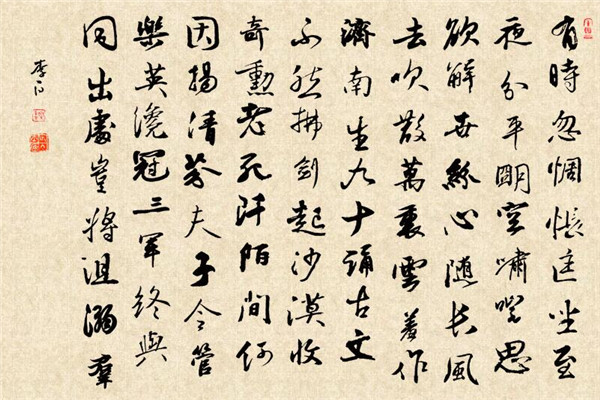 有時忽惆悵匡坐至
夜分平明空嘯咤思
欲解世紛心隨長風
去吹散萬裏雲羞作
濟南生九十誦古文
不然拂劍起沙漠收
奇勳老死阡陌間何
因揚清芬夫子今管
樂英纔冠三軍終與
同出處豈將沮溺羣
李白